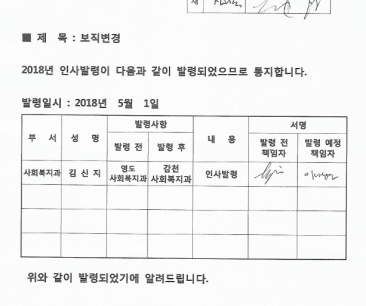 ■ 제 목 : 보직변경
2018년 인사발령이 다음과 같이 발령되었으므로 통지합니다.
발령일시 : 2018년 5월 1일
부 서 성 명 발령사항 내 용 서명
발령 전 발령 후 발령 전 책임자 발령 예정 책임자
사회복지과 김 신 지 영도 사회복지과 감천 사회복지과 인사발령
위와 같이 발령되었기에 알려드립니다.